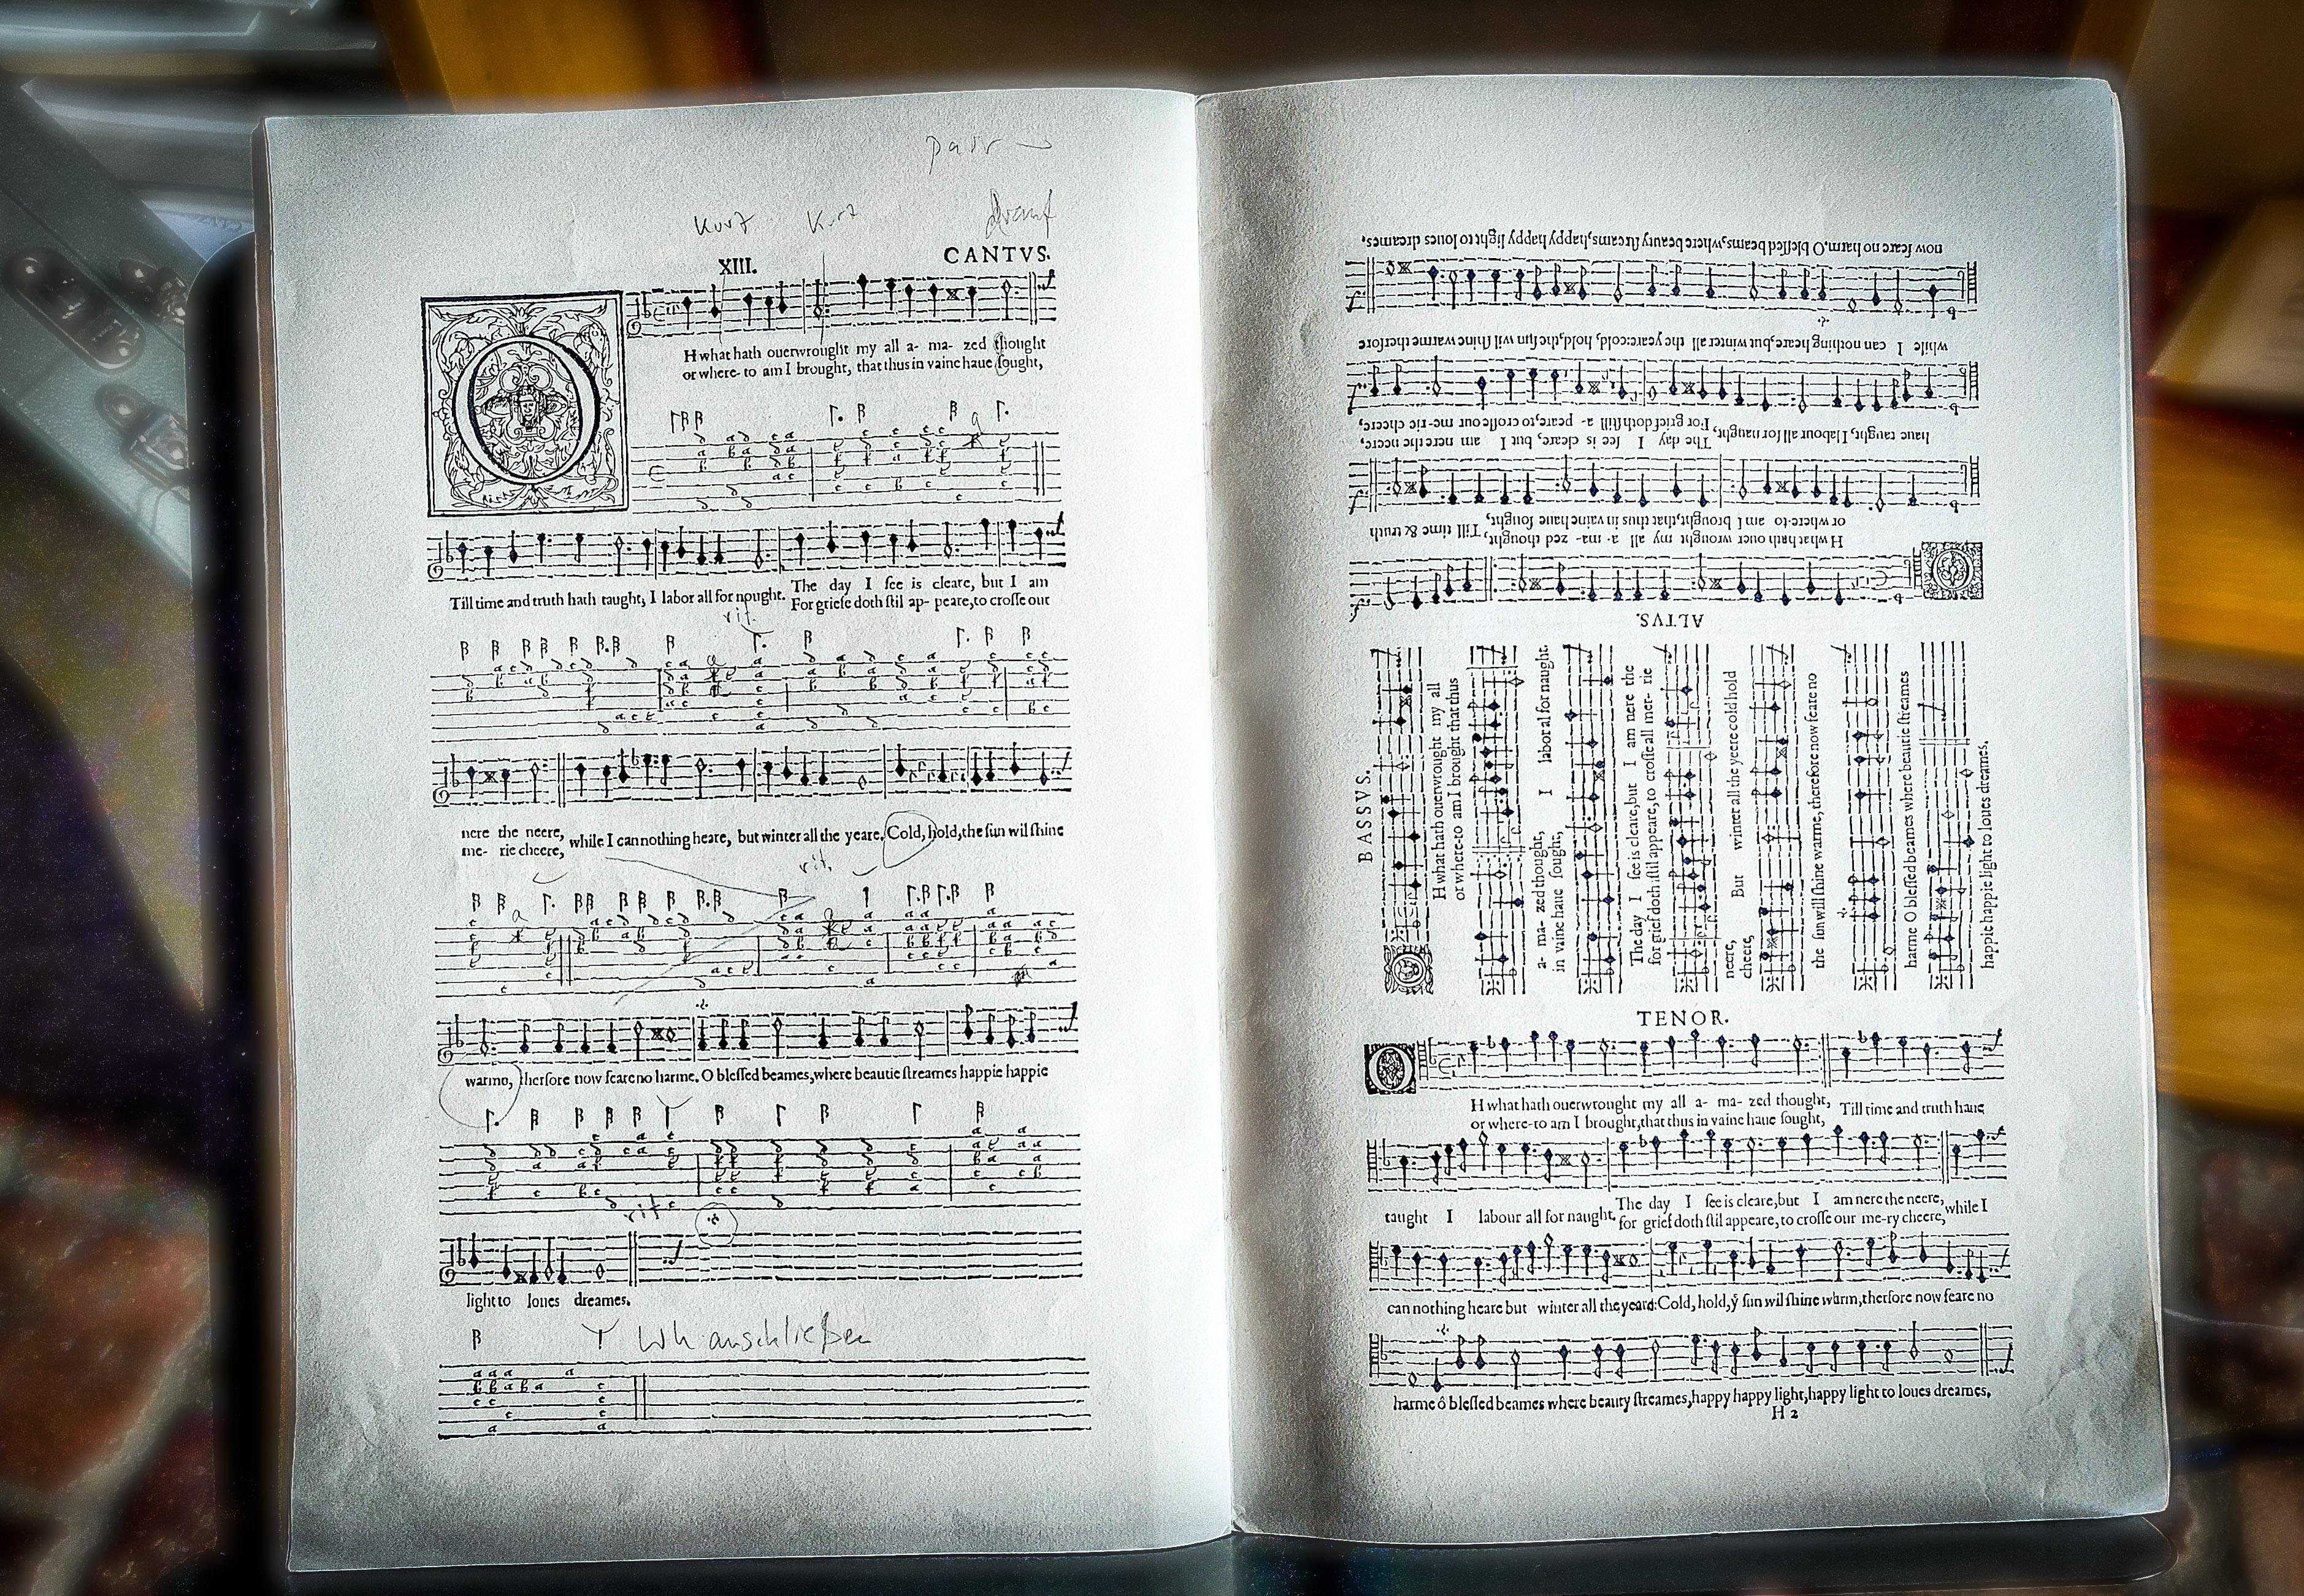 Kurz Kurz drauf
XIII. CANTVS.
H what hath ouerwrought my all a- ma- zed thought
or where- to am I brought, that thus in vaine haue sought,
Till time and truth hath taught, I labor all for nought.
The day I see is cleare, but I am
For griefe doth stil ap- peare, to crosse out
rit.
nere the neere,
me- rie cheere,
while I can nothing heare, but winter all the yeare. Cold, hold, the sun wil shine
rit.
warmo, therfore now feare no harme. O blessed beames, where beautie streames happie happie
rit
light to loues dreames.
Wh anschließen
ALTVS.
H what hath ouer wrought my all a- ma- zed thought,
or where-to am I brought, that thus in vaine haue sought,
Till time & truth
haue taught, I labour all for naught,
The day I see is cleare, but I am nere the neere,
For grief doth still a- peare, to crosse out me-rie cheere,
while I can nothing heare, but winter all the yeare: cold, hold, the sun wil shine warme therfore
now feare no harm. O blessed beams, where beauty streams, happy happy light to loues dreames.
BASSVS.
H what hath ouerwrought my all
or where-to am I brought that thus
a- ma- zed thought,
in vaine haue sought,
I labor al for naught.
The day I see is cleare, but I am nere the
for grief doth still appeare, to crosse all mer- rie
neere,
cheere,
But winter all the yeere cold hold
the sun will shine warme, therefore now feare no
harme O blessed beames where beautie streames
happie happie light to loues dreames.
TENOR.
H what hath ouerwrought my all a- ma- zed thought,
or where-to am I brought, that thus in vaine haue sought,
Till time and truth haue
taught I labour all for naught.
The day I see is cleare, but I am nere the neere,
for grief doth stil appeare, to crosse our me-ry cheere,
while I
can nothing heare but winter all the yeare: Cold, hold, ẏ sun wil shine warm, therfore now feare no
harme ô blessed beames where beauty streames, happy happy light, happy light to loues dreames.
H 2